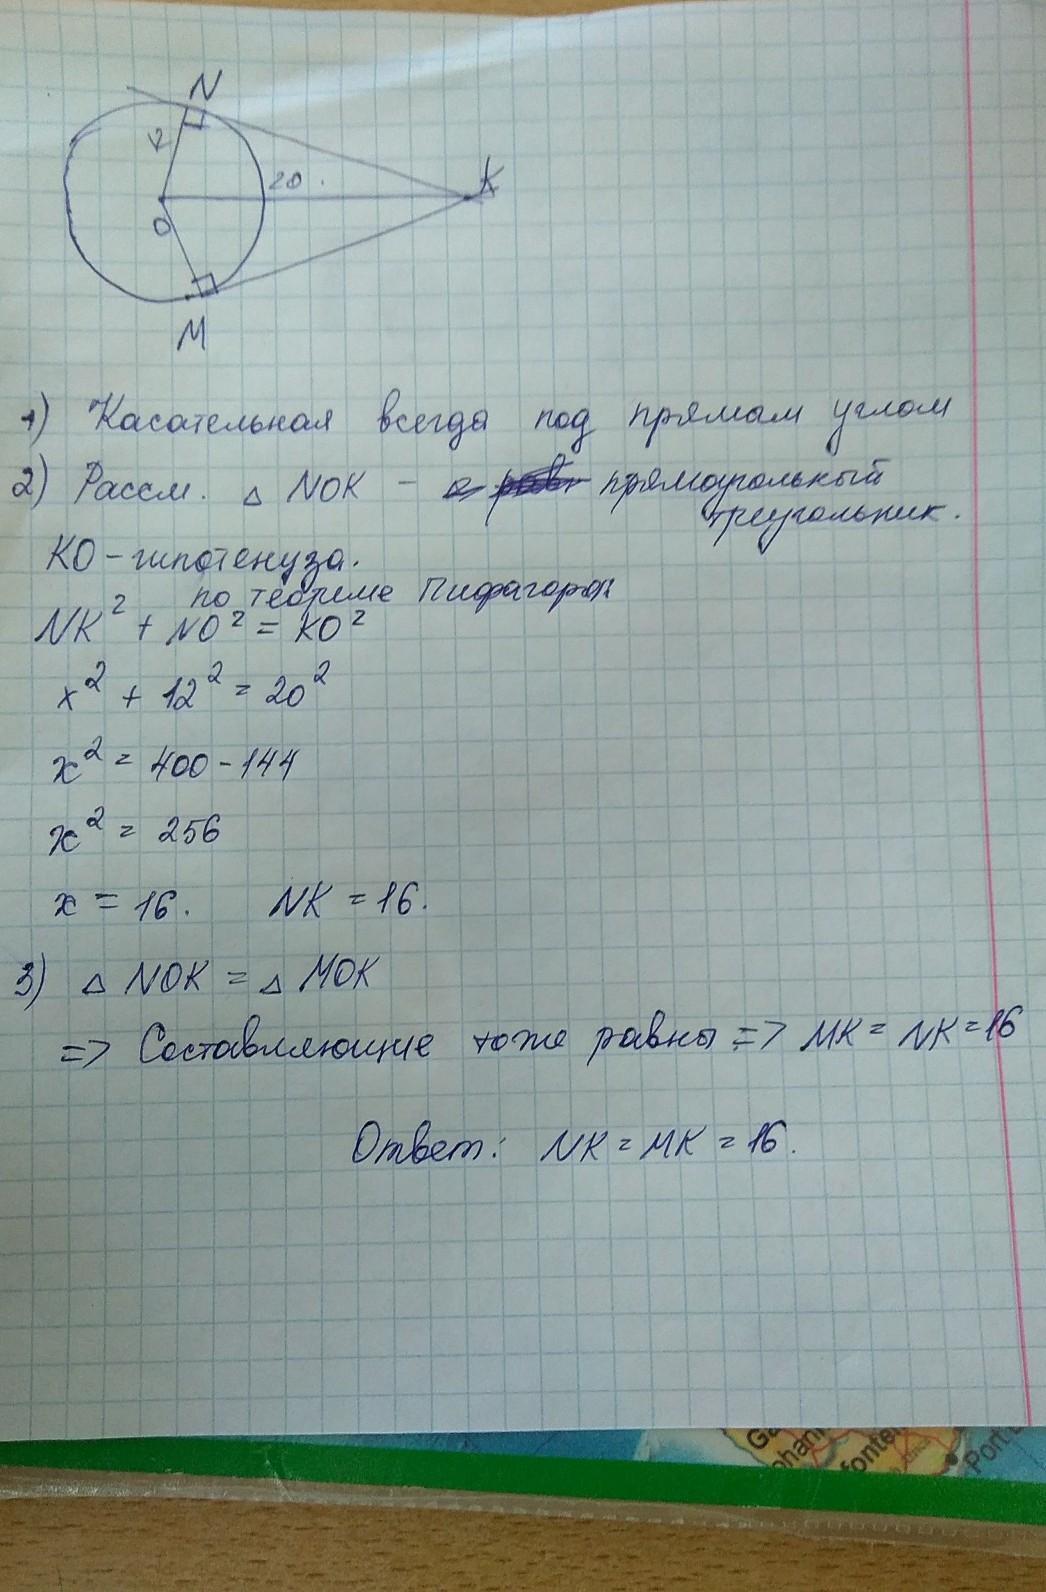 N
12
20.
K
O
M
1) Касательная всегда под прямым углом
2) Рассм. △ NOK - прямоугольный
треугольник.
KO - гипотенуза.
по теореме Пифагора
NK² + NO² = KO²
x² + 12² = 20²
x² = 400 - 144
x² = 256
x = 16. NK = 16.
3) △ NOK = △ MOK
=> Составляющие тоже равны => MK = NK = 16
Ответ: NK = MK = 16.
Port